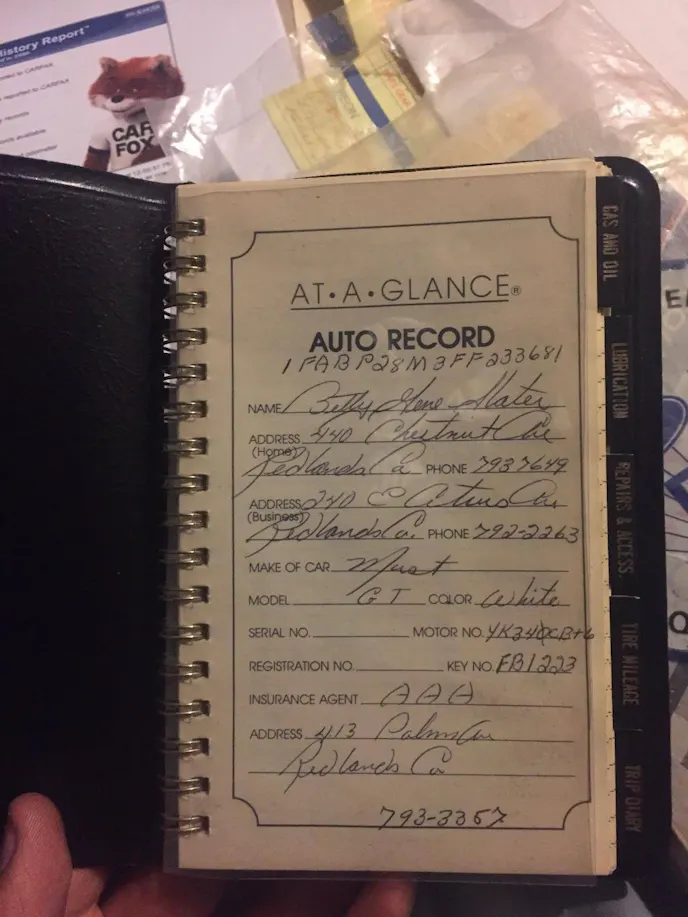 History Report™
CAR
FOX
AT•A•GLANCE®
AUTO RECORD
1FABP28M3FF233681
NAME Betty Gene Slater
ADDRESS 440 Chestnut Ave
(Home)
Redlands Ca PHONE 7937649
ADDRESS 240 Ave
(Business)
Redlands Ca. PHONE 792-2263
MAKE OF CAR Must
MODEL GT COLOR White
SERIAL NO. MOTOR NO.
REGISTRATION NO. KEY NO. FB1223
INSURANCE AGENT AAA
ADDRESS 413 Palm Ave
Redlands Ca
793-3357
GAS AND OIL
LUBRICATION
REPAIRS & ACCESS.
TIRE MILEAGE
TRIP DIARY